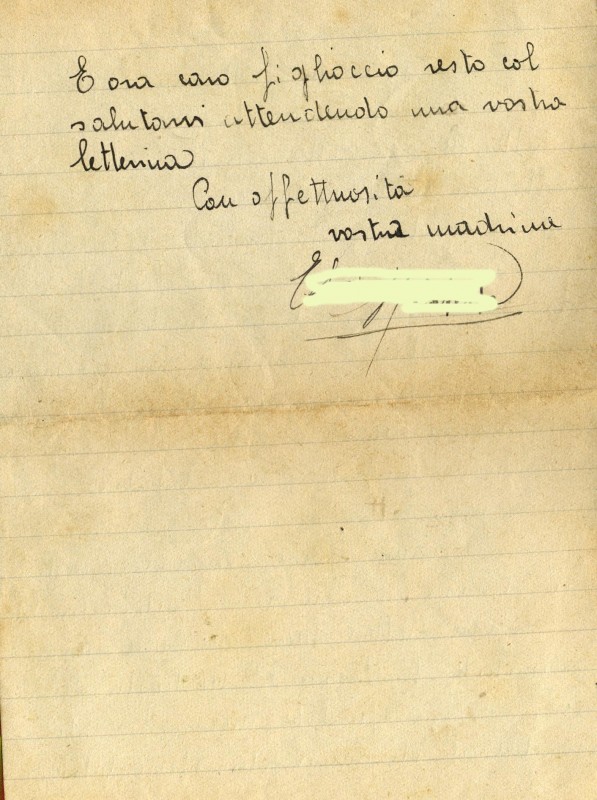 E ora caro figlioccio resto col
salutarvi attendendo una vostra
letterina
Con affettuosità
vostra madrina